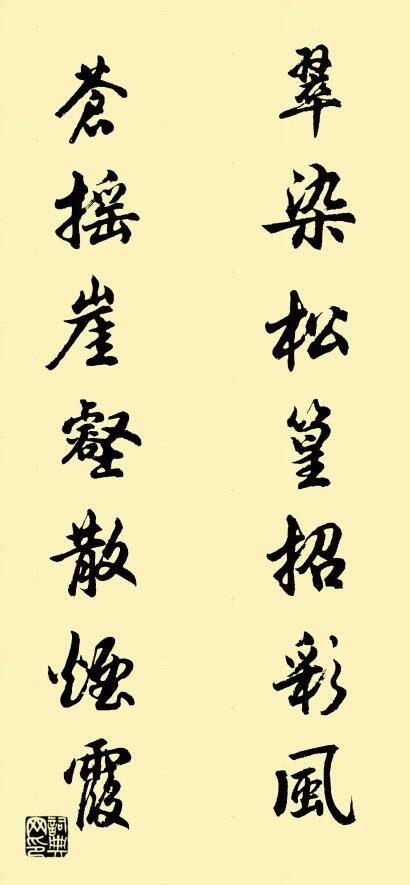 翠染松篁招彩風
蒼搖崖壑散煙霞
詞典網印